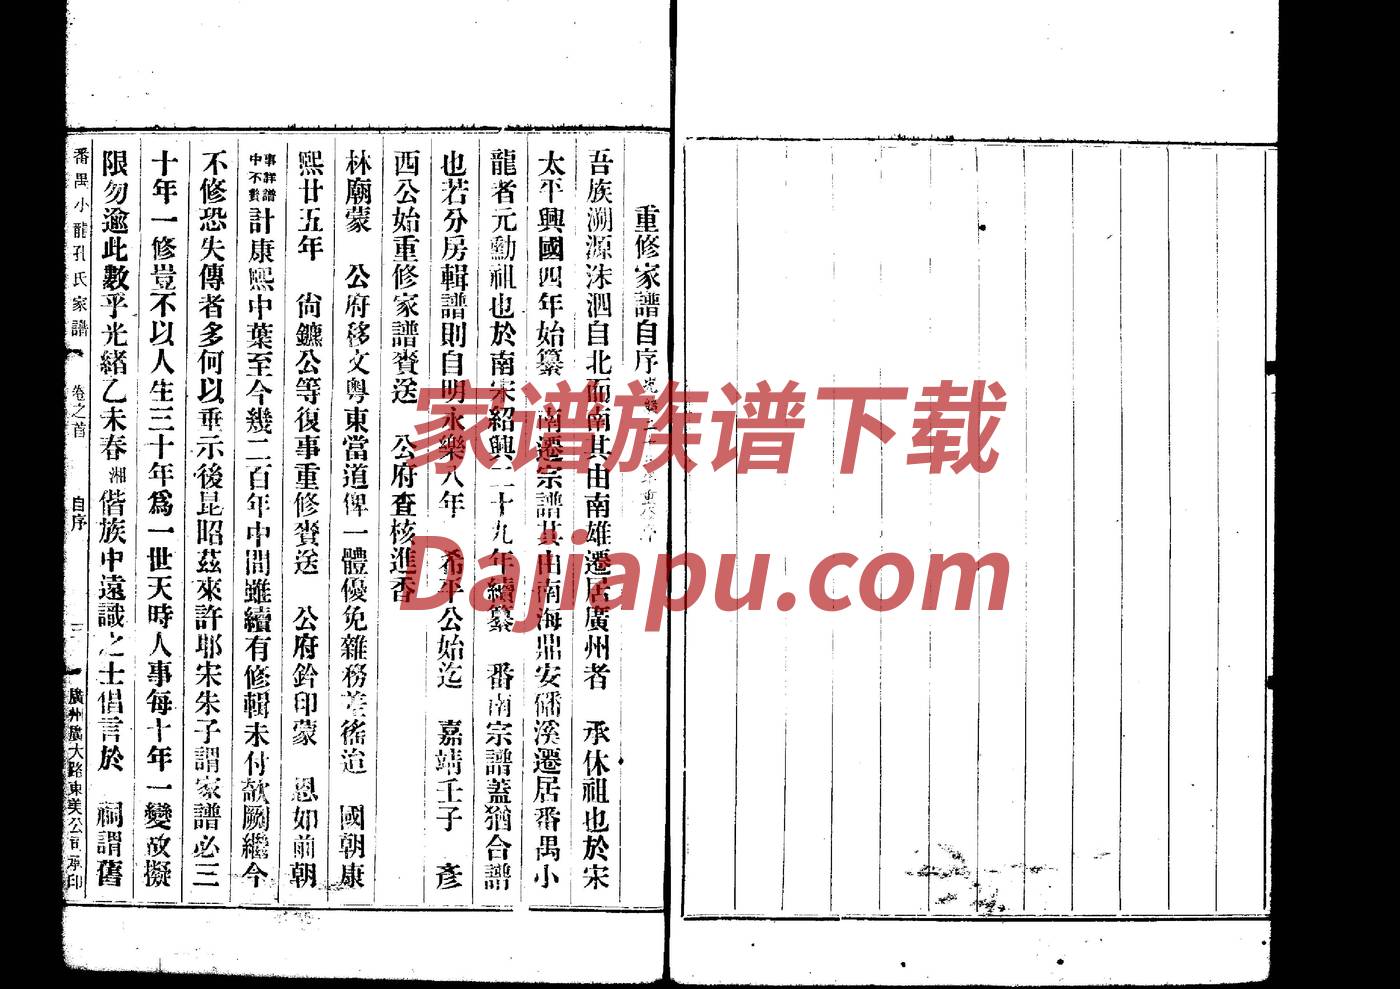 重修家譜自序
吾族溯源洙泗自北而南其由南雄遷居廣州者 承休祖也於宋
太平興國四年始纂 南遷宗譜其由南海鼎安磻溪遷居番禺小
龍者元勳祖也於南宋紹興二十九年續纂 番南宗譜蓋猶合譜
也若分房輯譜則自明永樂八年 希平公始迄 嘉靖壬子 彥
西公始重修家譜賫送 公府查核進香
林廟蒙 公府移文粵東當道俾一體優免雜務差徭迨 國朝康
熙廿五年 尙鑣公等復事重修賫送 公府鈐印蒙 恩如前朝
事詳譜
中不贅
計康熙中葉至今幾二百年中間雖續有修輯未付欹劂繼今
不修恐失傳者多何以垂示後昆昭茲來許耶宋朱子謂家譜必三
十年一修豈不以人生三十年爲一世天時人事每十年一變故擬
限勿逾此數乎光緒乙未春湘偕族中遠識之士倡言於 祠謂舊
番禺小龍孔氏家譜 卷之首 自序 三 廣州廣大路東美公司承印
家谱族谱下载
Dajiapu.com